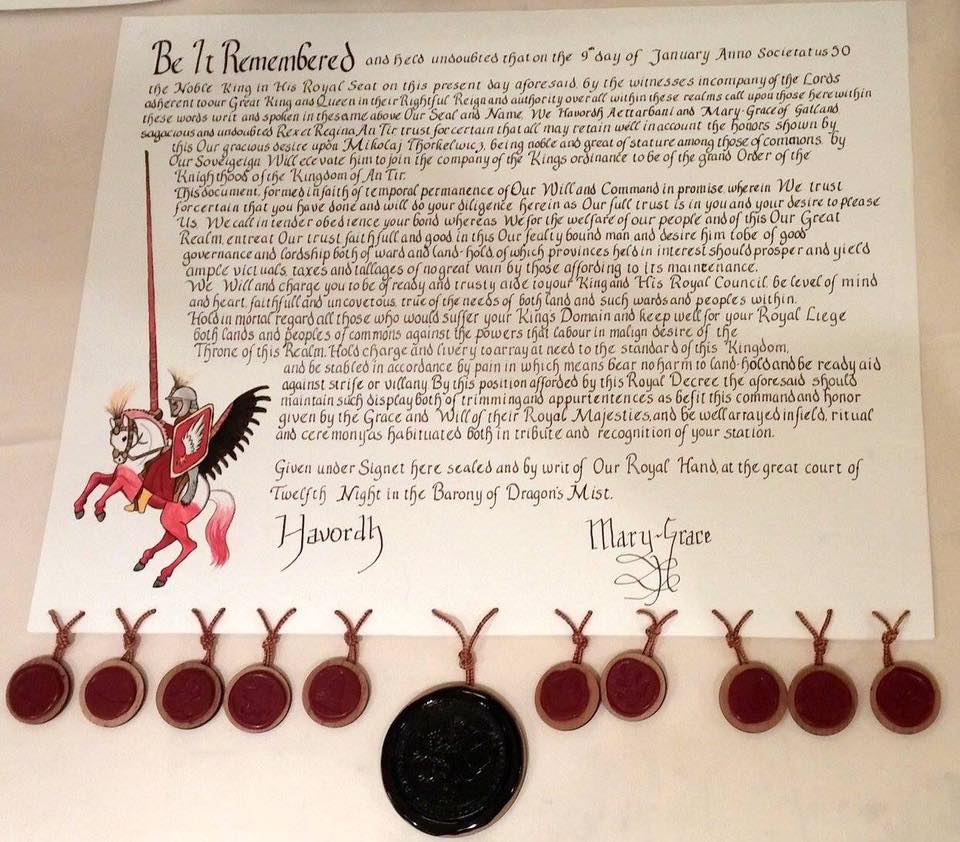 Be It Remembered and held undoubted that on the 9th day of January Anno Societatus 50
the Noble King in His Royal Seat on this present day aforesaid by the witnesses in company of the Lords
adherent to our Great King and Queen in their Rightful Reign and authority over all within these realms call upon those here within
these words writ and spoken in the same above Our Seal and Name. We Havordh Aettarbani and Mary-Grace of Gatland
sagacious and undoubted Rex et Regina An Tir trust for certain that all may retain well in account the honors shown by
this Our gracious desire upon Mikolaj Thorkelwicz, being noble and great of stature among those of commons, by
Our Soveigeign Will elevate him to join the company of the Kings ordinance to be of the grand Order of the
Knighthood of the Kingdom of An Tir.
This document, formed in faith of temporal permanence of Our Will and Command in promise, wherein We trust
for certain that you have done and will do your diligence herein as Our full trust is in you and your desire to please
Us. We call in tender obedience your bond whereas We for the welfare of our people and of this Our Great
Realm, entreat Our trust faithfull and good in this Our fealty bound man and desire him to be of good
governance and lordship both of ward and land-hold of which provinces held in interest should prosper and yield
ample victuals, taxes and tallages of no great vain by those affording to its maintenance.
We Will and charge you to be of ready and trusty aide to your King and His Royal Council, be level of mind
and heart, faithfull and uncovetous, true of the needs of both land and such wards and peoples within.
Hold in mortal regard all those who would suffer your King's Domain and keep well for your Royal Liege
both lands and peoples of commons against the powers that labour in malign desire of the
Throne of this Realm. Hold charge and livery to array at need to the standard of this Kingdom,
and be stabled in accordance by pain in which means bear no harm to land-hold and be ready aid
against strife or villany. By this position afforded by this Royal Decree the aforesaid should
maintain such display both of trimming and appurtentences as befit this command and honor
given by the Grace and Will of their Royal Majesties, and be well arrayed in field, ritual
and ceremony as habituated both in tribute and recognition of your station.
Given under Signet here sealed and by writ of Our Royal Hand, at the great court of
Twelfth Night in the Barony of Dragon's Mist.
Havordh Mary-Grace